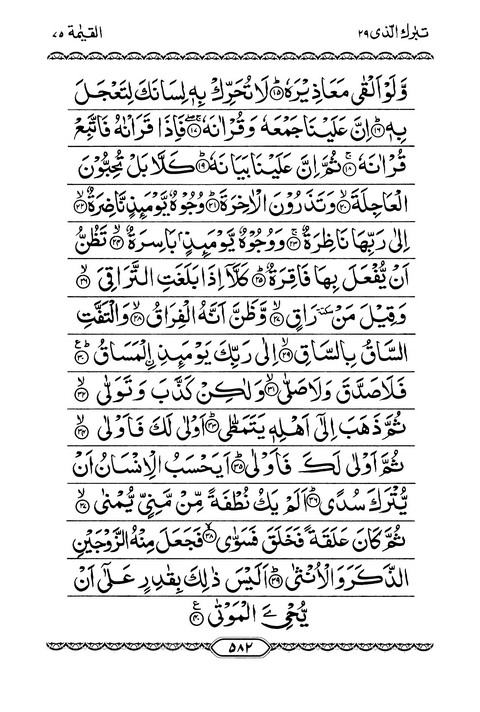 تبرك الذى ٢٩
القيٰمة ٧٥
وَّلَوْ اَلْقٰى مَعَاذِيْرَهٗ ۝١٥ لَا تُحَرِّكْ بِهٖ لِسَانَكَ لِتَعْجَلَ
بِهٖ ۝١٦ اِنَّ عَلَيْنَا جَمْعَهٗ وَ قُرْاٰنَهٗ ۝١٧ فَاِذَا قَرَاْنٰهُ فَاتَّبِعْ
قُرْاٰنَهٗ ۝١٨ ثُمَّ اِنَّ عَلَيْنَا بَيَانَهٗ ۝١٩ كَلَّا بَلْ تُحِبُّوْنَ
الْعَاجِلَةَ ۝٢٠ وَ تَذَرُوْنَ الْاٰخِرَةَ ۝٢١ وُجُوْهٌ يَّوْمَىِٕذٍ نَّاضِرَةٌ ۝٢٢
اِلٰى رَبِّهَا نَاظِرَةٌ ۝٢٣ وَ وُجُوْهٌ يَّوْمَىِٕذٍۭ بَاسِرَةٌ ۝٢٤ تَظُنُّ
اَنْ يُّفْعَلَ بِهَا فَاقِرَةٌ ۝٢٥ كَلَّاۤ اِذَا بَلَغَتِ التَّرَاقِيَ ۝٢٦
وَ قِيْلَ مَنْ ٚ رَاقٍ ۝٢٧ وَّ ظَنَّ اَنَّهُ الْفِرَاقُ ۝٢٨ وَ الْتَفَّتِ
السَّاقُ بِالسَّاقِ ۝٢٩ اِلٰى رَبِّكَ يَوْمَىِٕذِ ِ۟الْمَسَاقُ ۝٣٠ ع
فَلَا صَدَّقَ وَ لَا صَلّٰى ۝٣١ وَ لٰكِنْ كَذَّبَ وَ تَوَلّٰى ۝٣٢
ثُمَّ ذَهَبَ اِلٰۤى اَهْلِهٖ يَتَمَطّٰى ۝٣٣ اَوْلٰى لَكَ فَاَوْلٰى ۝٣٤
ثُمَّ اَوْلٰى لَكَ فَاَوْلٰى ۝٣٥ اَيَحْسَبُ الْاِنْسَانُ اَنْ
يُّتْرَكَ سُدًى ۝٣٦ اَلَمْ يَكُ نُطْفَةً مِّنْ مَّنِيٍّ يُّمْنٰى ۝٣٧
ثُمَّ كَانَ عَلَقَةً فَخَلَقَ فَسَوّٰى ۝٣٨ فَجَعَلَ مِنْهُ الزَّوْجَيْنِ
الذَّكَرَ وَ الْاُنْثٰى ۝٣٩ اَلَيْسَ ذٰلِكَ بِقٰدِرٍ عَلٰۤى اَنْ
يُّحْيِۦَ الْمَوْتٰى ۝٤٠ ع
٥٨٢